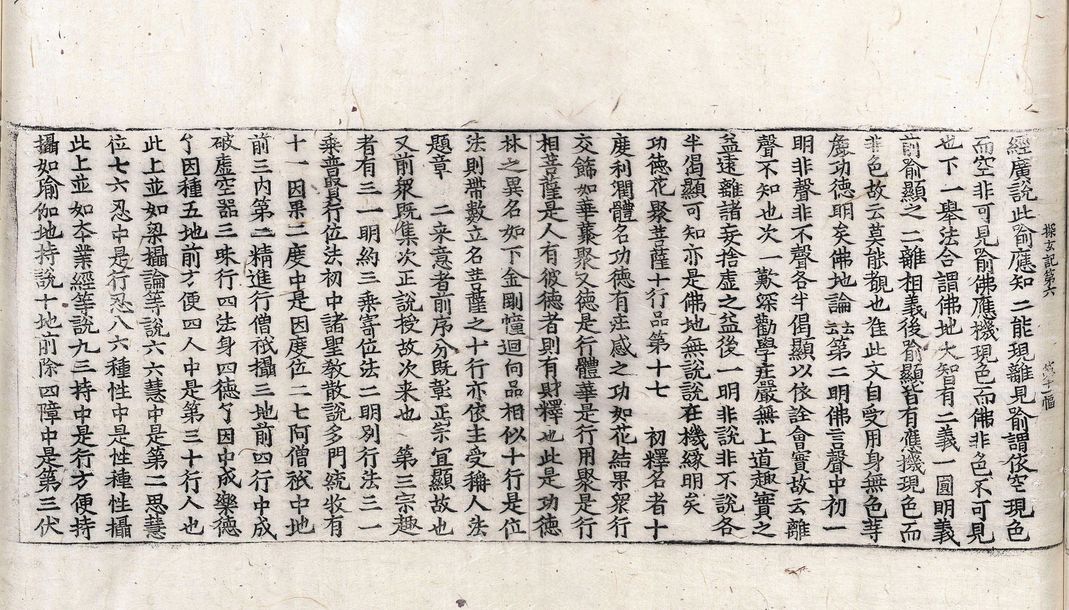 經廣說此喻應知二能現離見喻謂依空現色
而空非可見喻佛應機現色而佛非色不可見
也下一舉法合謂佛地大智有二義一圓明義
前喻顯之二離相義後喻顯皆有應機現色而
非色故云莫能覩也准此文自受用身無色等
廣功德明矣佛地論 第二明佛言聲中初一
明非聲非不聲各半偈顯以依詮會實故云離
聲不知也次一歎深勸學庄嚴無上道趣實之
益遠離諸妄捨虛之益後一明非說非不說各
半偈顯可知亦是佛地無說說在機緣明矣
功德花聚菩薩十行品第十七 初釋名者十
度利潤體名功德有庄感之功如花結果衆行
交飾如華藂聚又德是行體華是行用聚是行
相菩薩是人有彼德者則有財釋也此是功德
林之異名如下金剛幢迴向品相似十行是位
法則帶數立名菩薩之十行亦依主受稱人法
題章 二来意者前序分既彰正宗宜顯故也
又前衆既集次正說授故次来也 第三宗趣
者有三一明約三乘寄位法二明別行法三一
乘普賢行位法初中諸聖教散說多門統收有
十一因果二度中是因度位二七阿僧祇中地
前三内第二精進行僧祇攝三地前四行中成
破虛空器三珠行四法身四德了因中成樂德
了因種五地前方便四人中是第三十行人也
此上並如梁攝論等說六六慧中是第二思慧
位七六忍中是行忍八六種性中是性種性攝
此上並如本業經等說九三持中是行方便持
攝如瑜伽地持說十地前除四障中是第三伏
探玄記第六